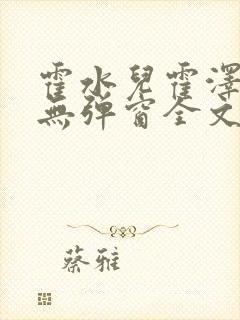 霍水兒霍澤
無彈窗全文
蔡雅